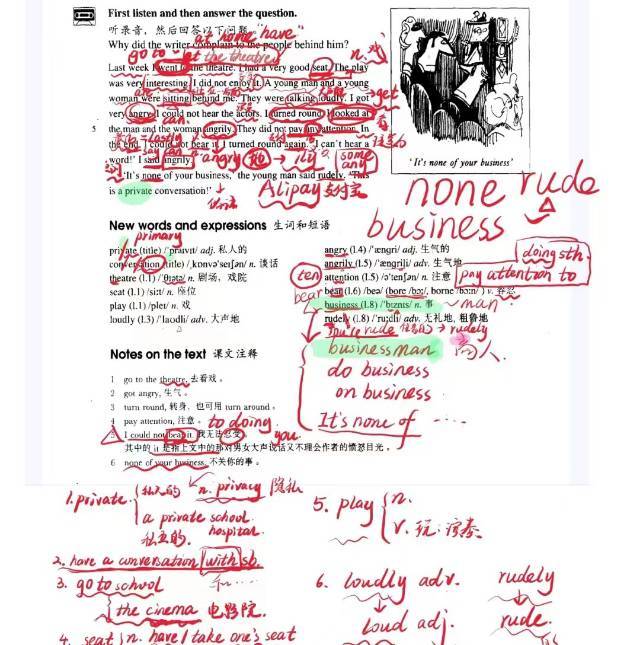 First listen and then answer the question.
听录音，然后回答以下问题。
at home "have"
Why did the writer complain to the people behind him?
go to at the theatre n. 戏
Last week I went to the theatre. I had a very good seat. The play
was very interesting. I did not enjoy it. A young man and a young
woman were sitting behind me. They were talking loudly. I got
get
very angry. I could not hear the actors. I turned round. I looked at
5 the man and the woman angrily. They did not pay any attention. In
the end, I could not bear it. I turned round again. 'I can't hear a
word!' I said angrily.
angry → ily some any
'It's none of your business,' the young man said rudely. 'This
is a private conversation!'
Alipay 支付宝
'It's none of your business'
none rude
business
New words and expressions 生词和短语
primary
private (title) /'praɪvɪt/ adj. 私人的
conversation (title) /ˌkɒnvə'seɪʃən/ n. 谈话
theatre (l.1) /'θɪətə/ n. 剧场，戏院
seat (l.1) /siːt/ n. 座位
play (l.1) /pleɪ/ n. 戏
loudly (l.3) /'laʊdli/ adv. 大声地
angry (l.4) /'æŋgri/ adj. 生气的
angrily (l.5) /'æŋgrɪli/ adv. 生气地
doing sth.
attention (l.5) /ə'tenʃən/ n. 注意
ten
pay attention to
bear (l.6) /beə/ (bore /bɔː/, borne /bɔːn/) v. 容忍
bear
business (l.8) /'bɪznɪs/ n. 事
~man
rudely (l.8) /'ruːdli/ adv. 无礼地，粗鲁地
you're rude → rudely
businessman 商人.
do business
on business
It's none of ....
Notes on the text 课文注释
1 go to the theatre, 去看戏。
2 got angry, 生气。
3 turn round, 转身，也可用 turn around。
4 pay attention, 注意。
to doing
5 I could not bear it. 我无法忍受。
you
其中的 it 是指上文中的那对男女大声说话又不理会作者的愤怒目光。
6 none of your business, 不关你的事。
1. private 私人的 n. privacy 隐私
a private school.
私立的. hospital.
2. have a conversation with sb.
3. go to school 和....
the cinema 电影院.
4. seat n. have/take one's seat
5. play n.
v. 玩. 演奏.
6. loudly adv. rudely
loud adj. rude.